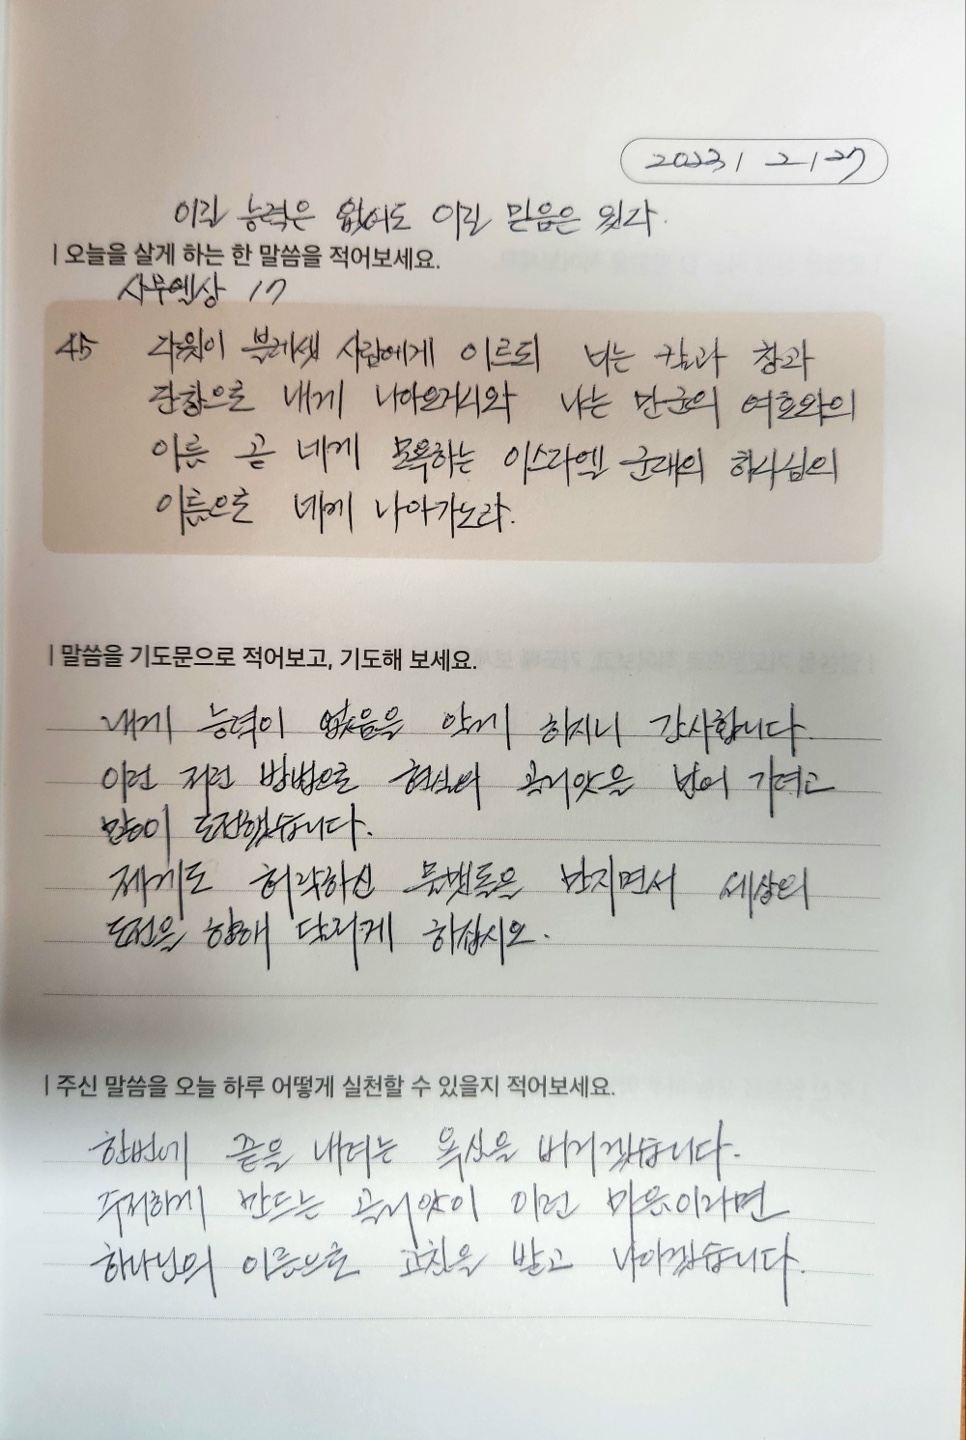 2023 / 2 / 27
이길 능력은 없어도 이길 믿음은 있다.
| 오늘을 살게 하는 한 말씀을 적어보세요.
사무엘상 17
45 다윗이 블레셋 사람에게 이르되 너는 칼과 창과
단창으로 내게 나아오거니와 나는 만군의 여호와의
이름 곧 네게 모욕하는 이스라엘 군대의 하나님의
이름으로 네게 나아가노라.
| 말씀을 기도문으로 적어보고, 기도해 보세요.
내게 능력이 없음을 알게 하시니 감사합니다.
이런 저런 방법으로 현실의 골리앗을 넘어 가려고
많이 도전했습니다.
제게도 허락하신 물맷돌을 던지면서 세상의
도전을 향해 달리게 하십시오.
| 주신 말씀을 오늘 하루 어떻게 실천할 수 있을지 적어보세요.
한번에 끝을 내려는 욕심을 버리겠습니다.
주저하게 만드는 골리앗이 이런 마음이라면
하나님의 이름으로 고침을 받고 나아겠습니다.